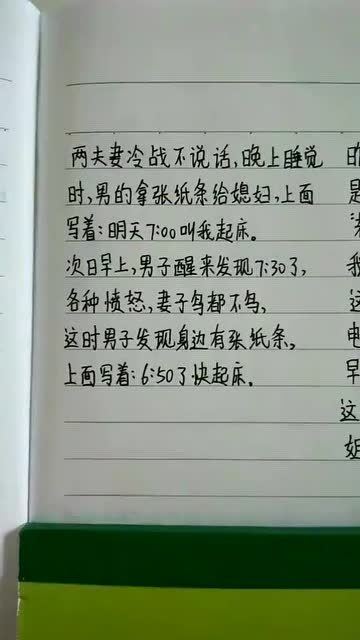 两夫妻冷战不说话,晚上睡觉
时,男的拿张纸条给媳妇,上面
写着:明天7:00叫我起床。
次日早上,男子醒来发现7:30了,
各种愤怒,妻子鸟都不鸟,
这时男子发现身边有张纸条。
上面写着:6:50了快起床。
昨
是
我
这
电
早
这
姐